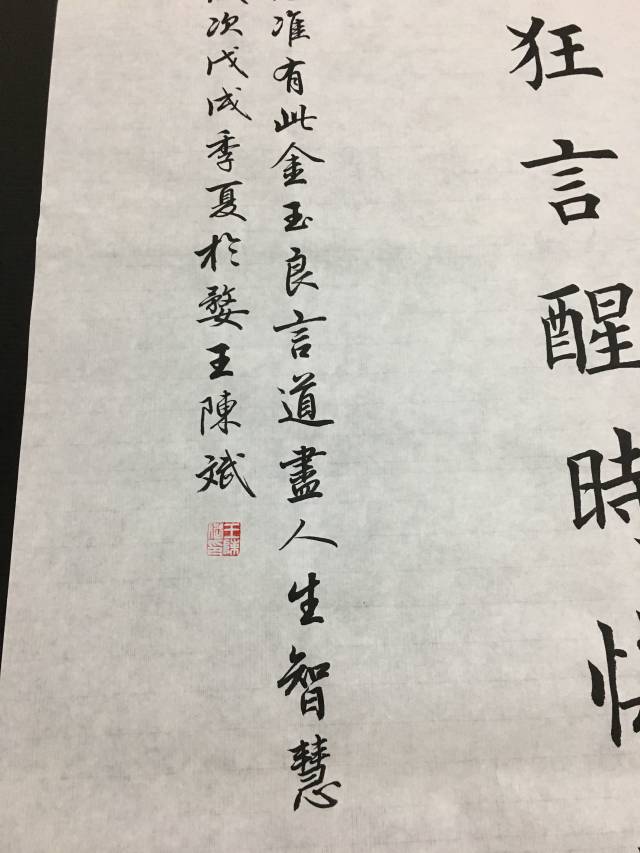 狂言醒時
准有此金玉良言道盡人生智慧
次戊戌季夏於婺王陳斌
王陳斌印